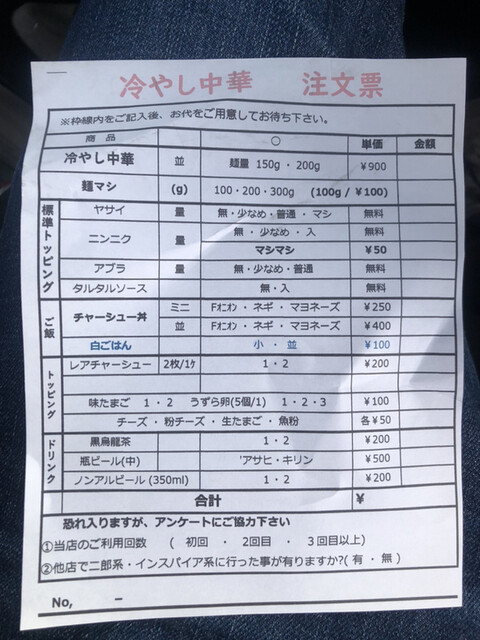 冷やし中華 注文票
※枠線内をご記入後、お代をご用意してお待ち下さい。
商品 ○ 単価 金額
冷やし中華 並 麺量 150g・200g ¥900
麺マシ (g) 100・200・300g (100g / ¥100)
標準トッピング
ヤサイ 量 無・少なめ・普通・マシ 無料
ニンニク 量 無・少なめ・入 無料
マシマシ ¥50
アブラ 量 無・少なめ・普通 無料
タルタルソース 無・入 無料
ご飯
チャーシュー丼 ミニ Fオニオン・ネギ・マヨネーズ ¥250
並 Fオニオン・ネギ・マヨネーズ ¥400
白ごはん 小・並 ¥100
トッピング
レアチャーシュー 2枚/1ヶ 1・2 ¥200
味たまご 1・2 うずら卵(5個/1) 1・2・3 ¥100
チーズ・粉チーズ・生たまご・魚粉 各¥50
ドリンク
黒烏龍茶 1・2 ¥200
瓶ビール(中) 'アサヒ・キリン ¥500
ノンアルビール (350ml) 1・2 ¥200
合計 ¥
恐れ入りますが、アンケートにご協力下さい
①当店のご利用回数 ( 初回 ・ 2回目 ・ 3回目以上)
②他店で二郎系・インスパイア系に行った事が有りますか?( 有・無 )
No, −